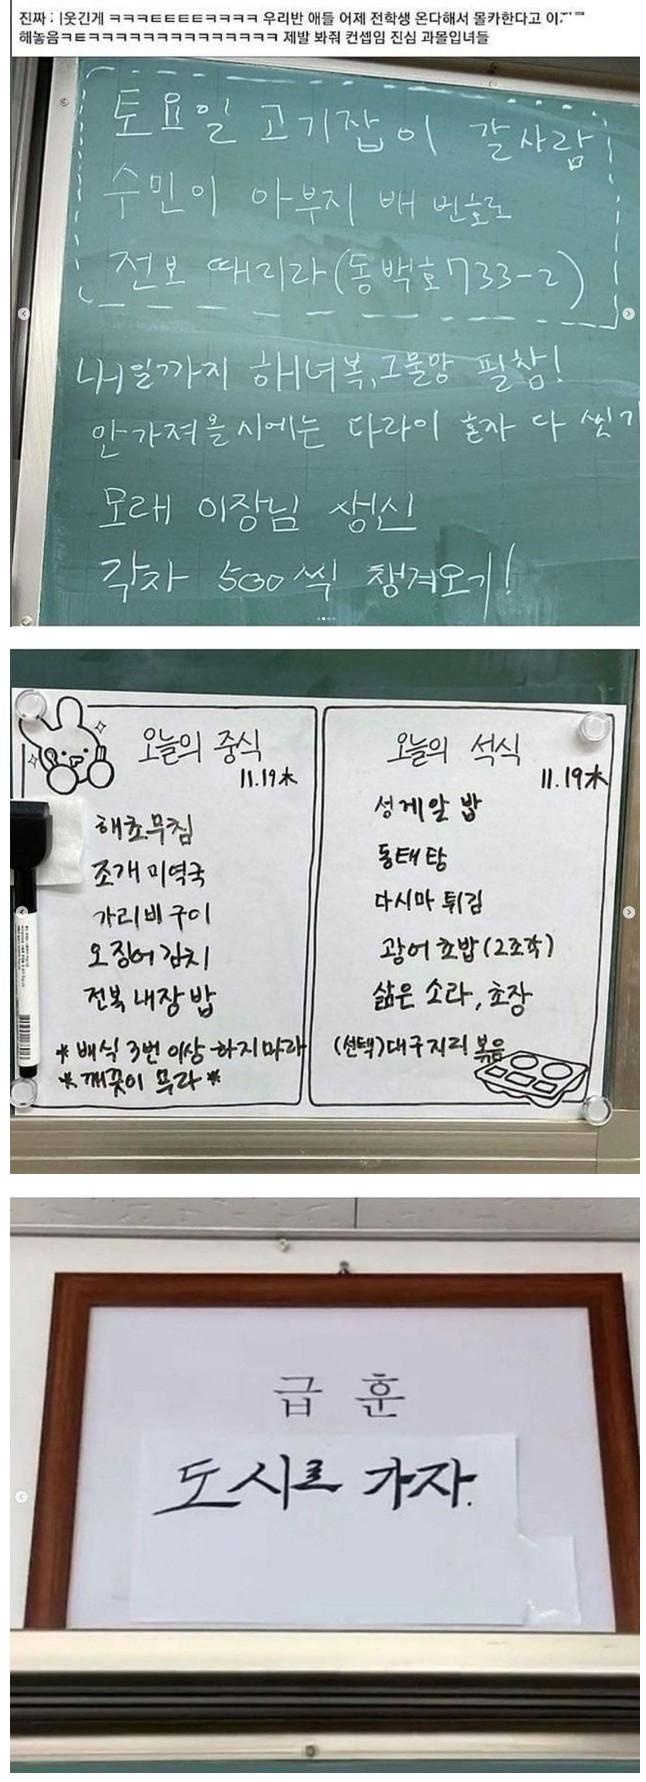 진짜 웃긴게 ㅋㅋㅋㅌㅌㅌㅌㅋㅋㅋㅋ 우리반 애들 어제 전학생 온다해서 몰카한다고
해놓음ㅋㅌㅋㅋㅋㅋㅋㅋㅋㅋㅋㅋㅋㅋㅋㅋ 제발 봐줘 컨셉임 진심 과몰입녀들
토요일 고기잡이 갈사람
수민이 아부지 배 번호로
전보 때리라(동백호733-2)
내일까지 해녀복,그물망 필참!
안가져올시에는 다라이 혼자 다 씻기
모레 이장님 생신
각자 500씩 챙겨오기!
오늘의 중식
11.19木
해초무침
조개미역국
가리비구이
오징어김치
전복내장밥
*배식 3번이상 하지마라
*깨끗이 무라*
오늘의 석식
11.19木
성게알 밥
동태탕
다시마 튀김
광어초밥(2조각)
삶은 소라, 초장
(선택)대구지리 볶음
급 훈
도시로 가자.